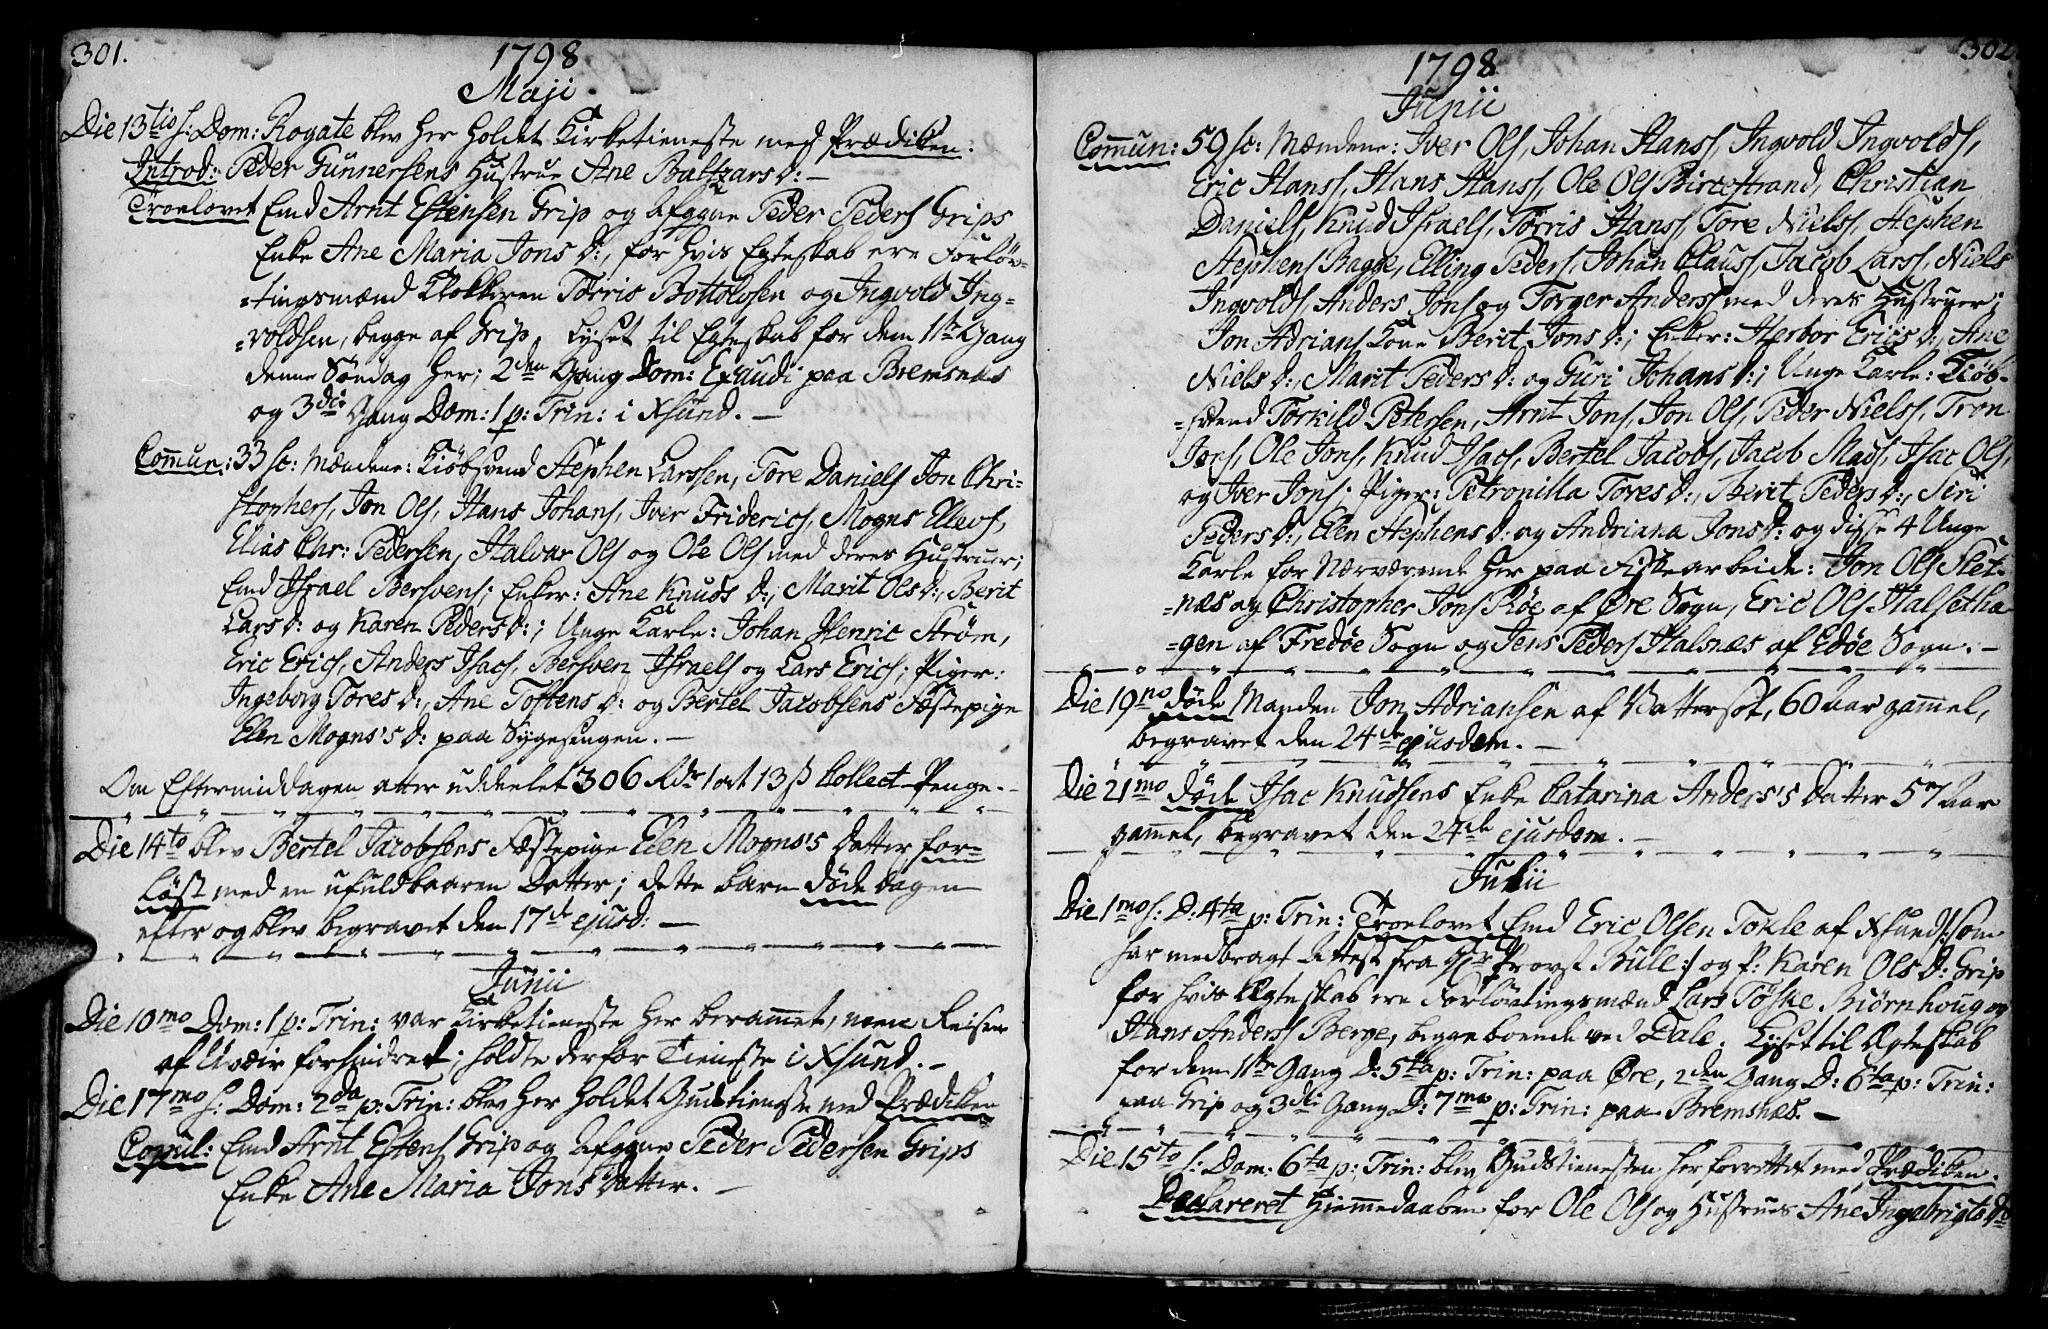 301.
1798
Maji.
Die 13tio s: Dom: Rogate blev her holdet Kirketieneste med Prædiken.
Introd: Peder Gunnersens Hustrue Ane Baltzars D: –
Troelovet Emd Arnt Estensen Grip og afgγne Peder Peders Grips
Enke Ane Maria Jons D:, for hvis Egteskab ere Forløv-
=tingsmænd Klokkeren Torris Bottolvsen og Ingvold Ing=
=voldsen, begge af Grip. Lyset til Egteskab for dem 1ste Gang
denne Søndag her; 2den Gang Dom: Exaudi paa Bremsnæs
og 3die Gang Dom: 1 p: Trin: i Xsund. –
Comun: 33 sc: Mændene: Kiøbsvend Stephen Larssen, Tore Daniels Jon Chri-
stophers, Jon Ols, Hans Johans, Iver Friderics, Mogns Ellevs,
Elias Chr: Pedersen, Halvar Ols og Ole Ols med deres Hustruer;
Emd Israel Bersvens; Enker: Ane Knuds D:, Marit Ols D:, Berit
Lars D: og Karen Peders D:; Unge Karle: Johan Henric Strøm,
Eric Erics, Anders Isacs, Bersven Israels og Lars Erics; Piger:
Ingeborg Tores D:, Ane Tostens D: og Bertel Jacobsens Fæstepige
Elen Mogns's D: paa Sygesengen. –
Om Eftermiddagen atter uddeelet 306 Rdr 1 ort 13 ß Collect-Penge. –
Die 14to blev Bertel Jacobsens Fæstepige Elen Mogns's Datter for=
løst med en ufuldbaaren Datter; dette barn døde dagen
efter og blev begravet den 17de ejusd: –
Junii
Die 10mo Dom: 1 p: Trin: var Kirketieneste her berammet, mene Reisen
af Uveir forhindret; holdte derfor Tieneste i Xsund. –
Die 17mo s: Dom: 2da p: Trin: blev her holdet Gudstieneste med Prædiken
Copul: Emd Arnt Estens Grip og afgγne Peder Pedersen Grips
Enke Ane Maria Jons Datter. –
302
1798
Junii
Comun: 59 sc: Mændene: Iver Ols, Johan Hans, Ingvold Ingvolds,
Eric Hanss, Hans Hanss, Ole Ols Bircestrand, Christian
Daniels, Knud Israels, Torris Hanss, Tore Nielss, Stephen
Stephens Bagge, Elling Peders, Johan Clauss, Jacob Larss, Niels
Ingvolds, Anders Jons og Torger Anderss med deres Hustruer;
Jon Adrians Kone Berit Jons D:; Enker: Herbor Erics D:, Ane
Niels D:, Marit Peders D: og Guri Johans D:; Unge Karle: Kiøb-
=svend Torkild Petersen, Arnt Jons, Jon Ols, Peder Nielss, Tron
Jons, Ole Jons, Knud Isacs, Bertel Jacobs, Jacob Mads, Isac Ols,
og Iver Jons; Piger: Petronilla Tores D:, Berit Peders D:, Siri
Peders D:, Elen Stephens D: og Andriana Jons D: og disse 4 Unge
Karle for Nærværende her paa Fiskearbeide: Jon Ols Slet-
=næs og Christopher Jons Røe af Øre Sogn, Eric Ols Halsetha
=gen af Fredøe Sogn og Jens Peders Halsnæs af Edøe Sogn. –
Die 19no døde Manden Jon Adriansen af Vattersot, 60 aar gamel,
begravet den 24de ejusdem. –
Die 21mo døde Isac Knudsens Enke Catarina Anders's Datter 57 Aar
gamel, begravet den 24de ejusdem. –
Julii
Die 1mo s: D: 4ta p: Trin: Troelovet Emd Eric Olsen Tokle af Xsund /: som
har medbragt Attest fra Hr Provst Bull :/ og P: Karen Ols D: Grip
for hvis Ægteskab ere Forløvtingsmænd Lars Toske Biørnhoug og
Hans Anderss Berge, begge boende ved Dale. Lyset til Ægteskab
for dem 1ste Gang D: 5ta p: Trin: paa Øre, 2den Gang D: 6ta p: Trin:
paa Grip og 3die Gang D: 7ma p: Trin: paa Bremsnæs. –
Die 15to s: Dom: 6ta p: Trin: blev Gudstienesten her forrettet med Prædiken.
Declareret Hiemmedaaben for Ole Ols og Hustrues Ane Ingebrigts D: